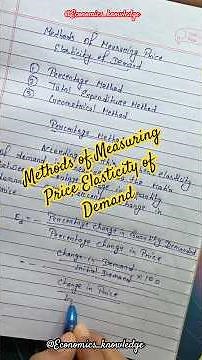 @Economics_knowledge
Methods of Measuring Price
Elasticity of Demand
① Percentage Method
② Total Expenditure Method
③ Geometrical Method
Percentage Metho
Methods of Measuring
Price Elasticity of
Demand
According
elasticity
of demand
change in
price
Ed = - Percentage change in Quantity Demanded
Percentage change in Price
= Change in Demand
Initial Demand × 100
Change in Price
In
@Economics_knowledge